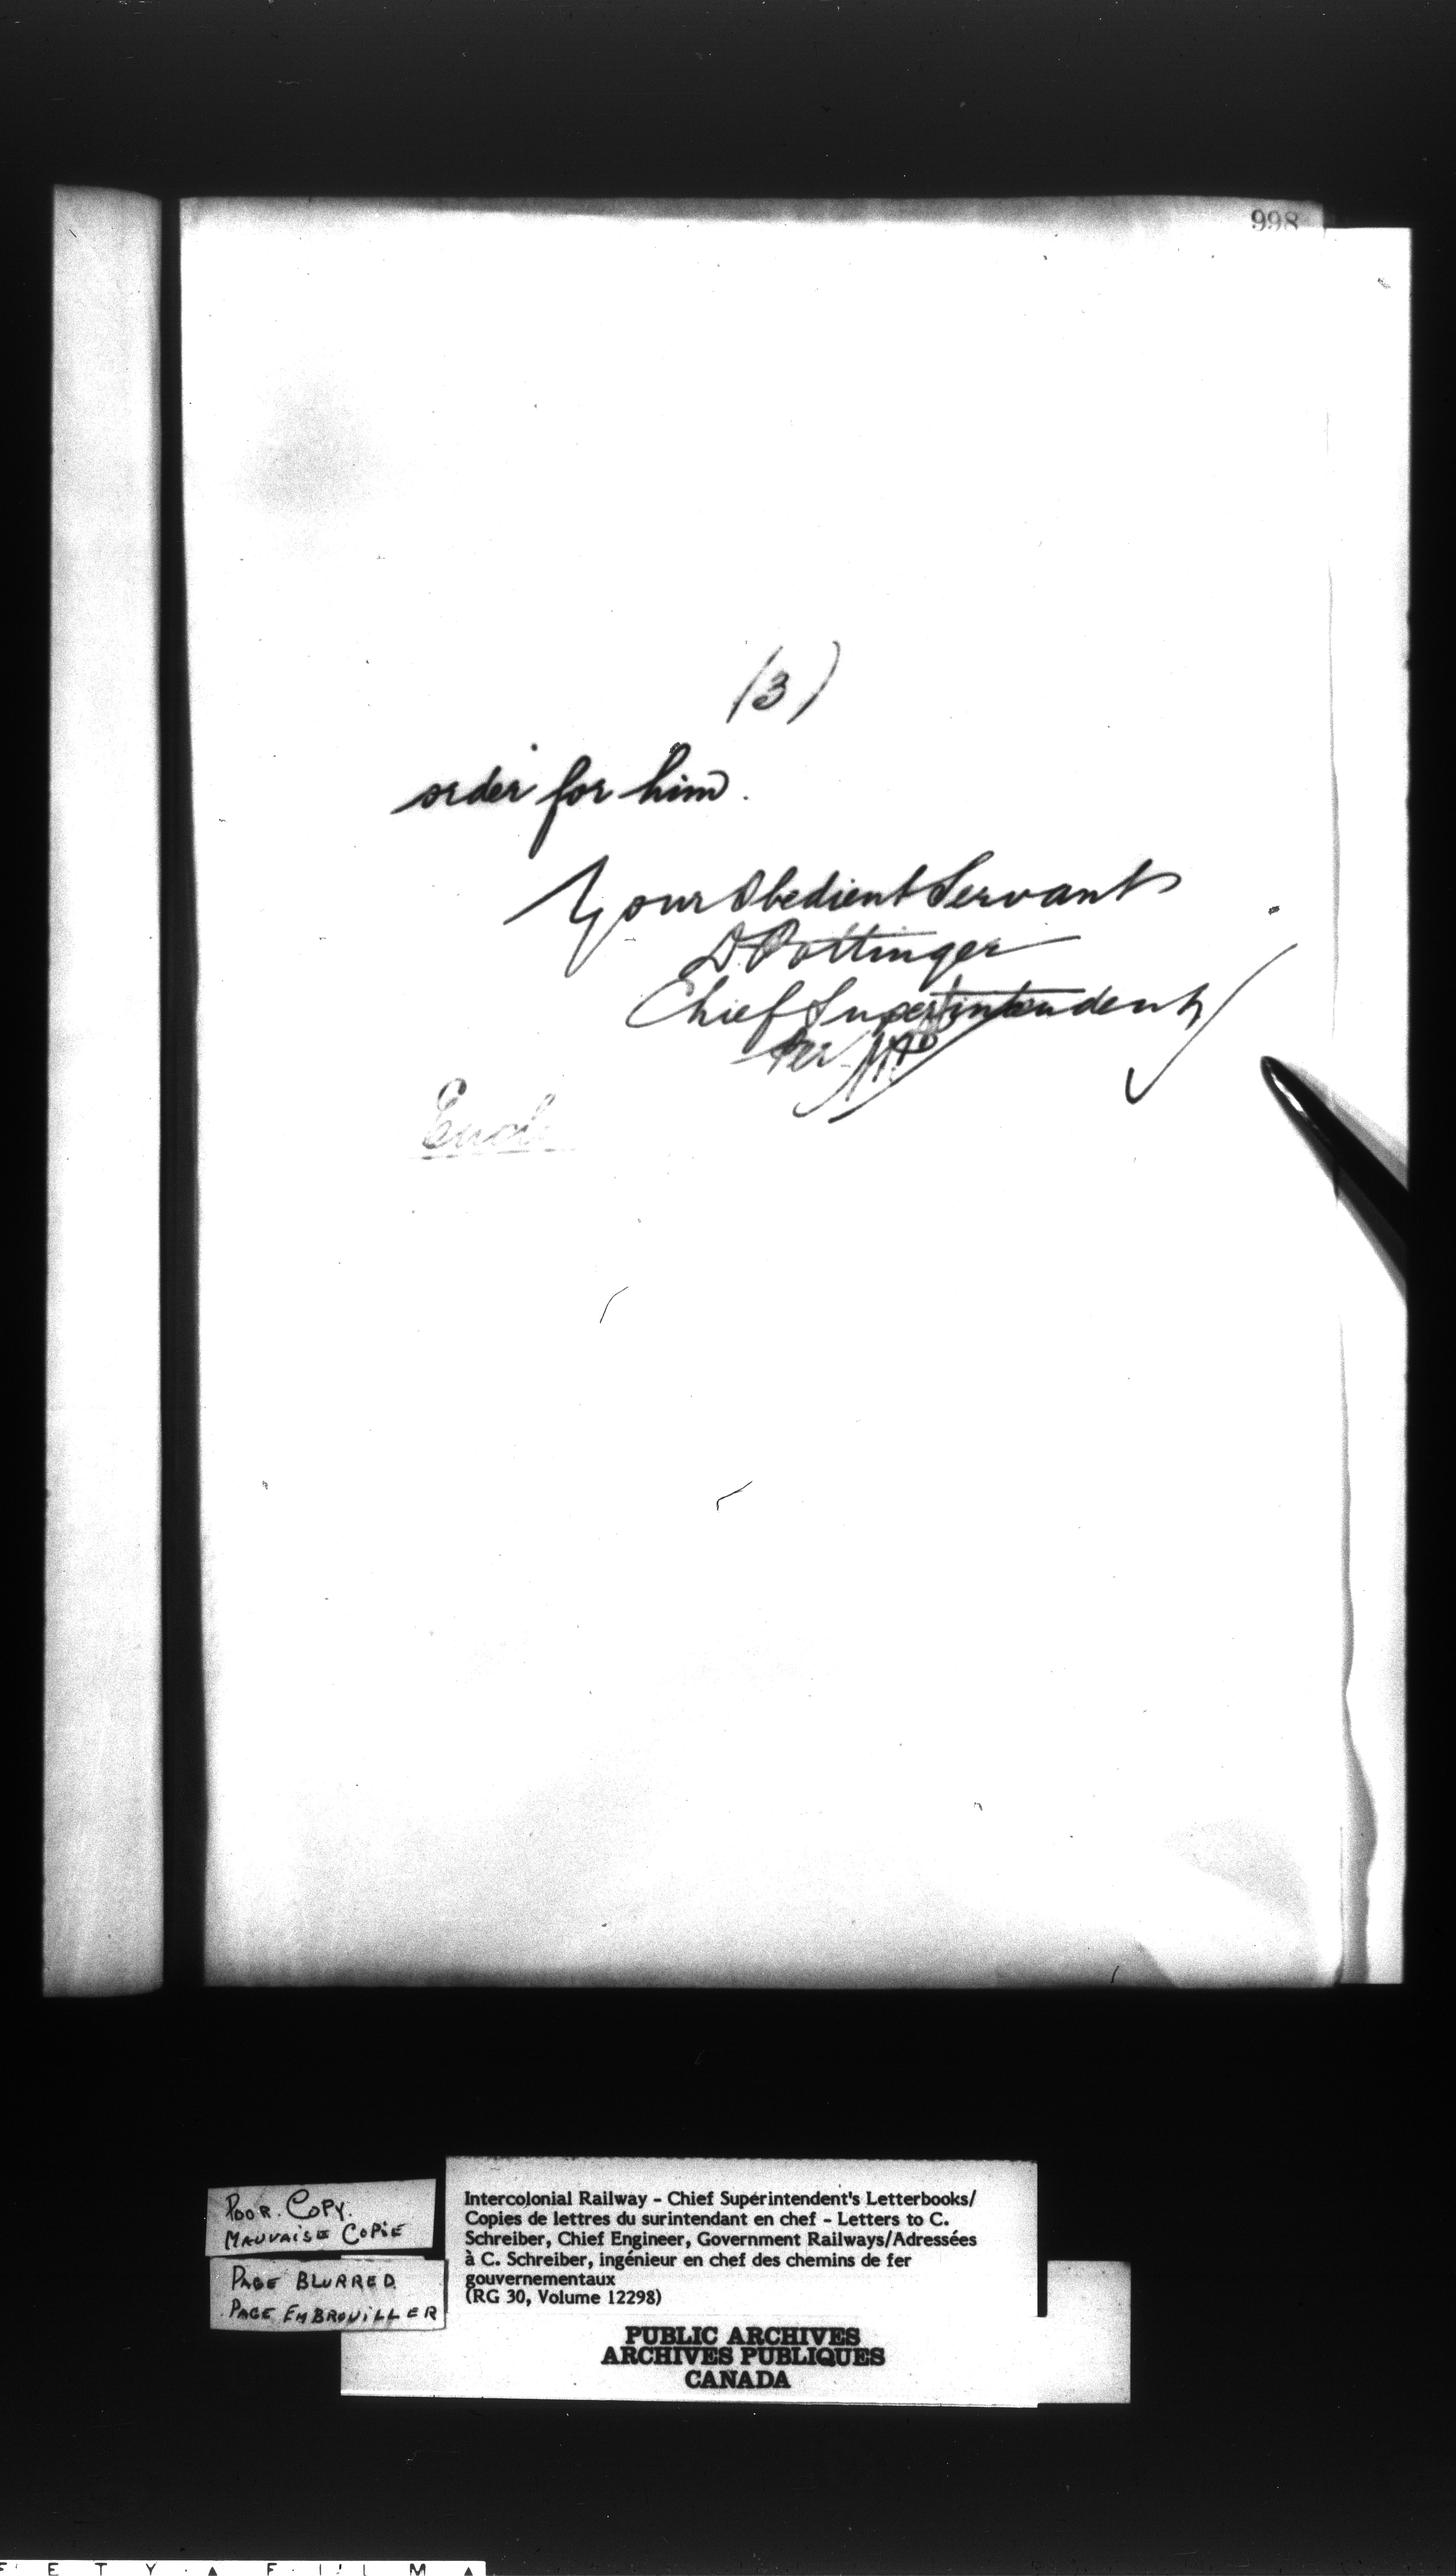 998
(3)
order for him.
Your Obedient Servant
D. Pottinger
Chief Superintendent
Per
Encl
POOR COPY.
MAUVAISE COPIE
PAGE BLURRED
PAGE EMBROUILLER
Intercolonial Railway - Chief Superintendent's Letterbooks/
Copies de lettres du surintendant en chef - Letters to C.
Schreiber, Chief Engineer, Government Railways/Adressées
à C. Schreiber, ingénieur en chef des chemins de fer
gouvernementaux
(RG 30, Volume 12298)
PUBLIC ARCHIVES
ARCHIVES PUBLIQUES
CANADA